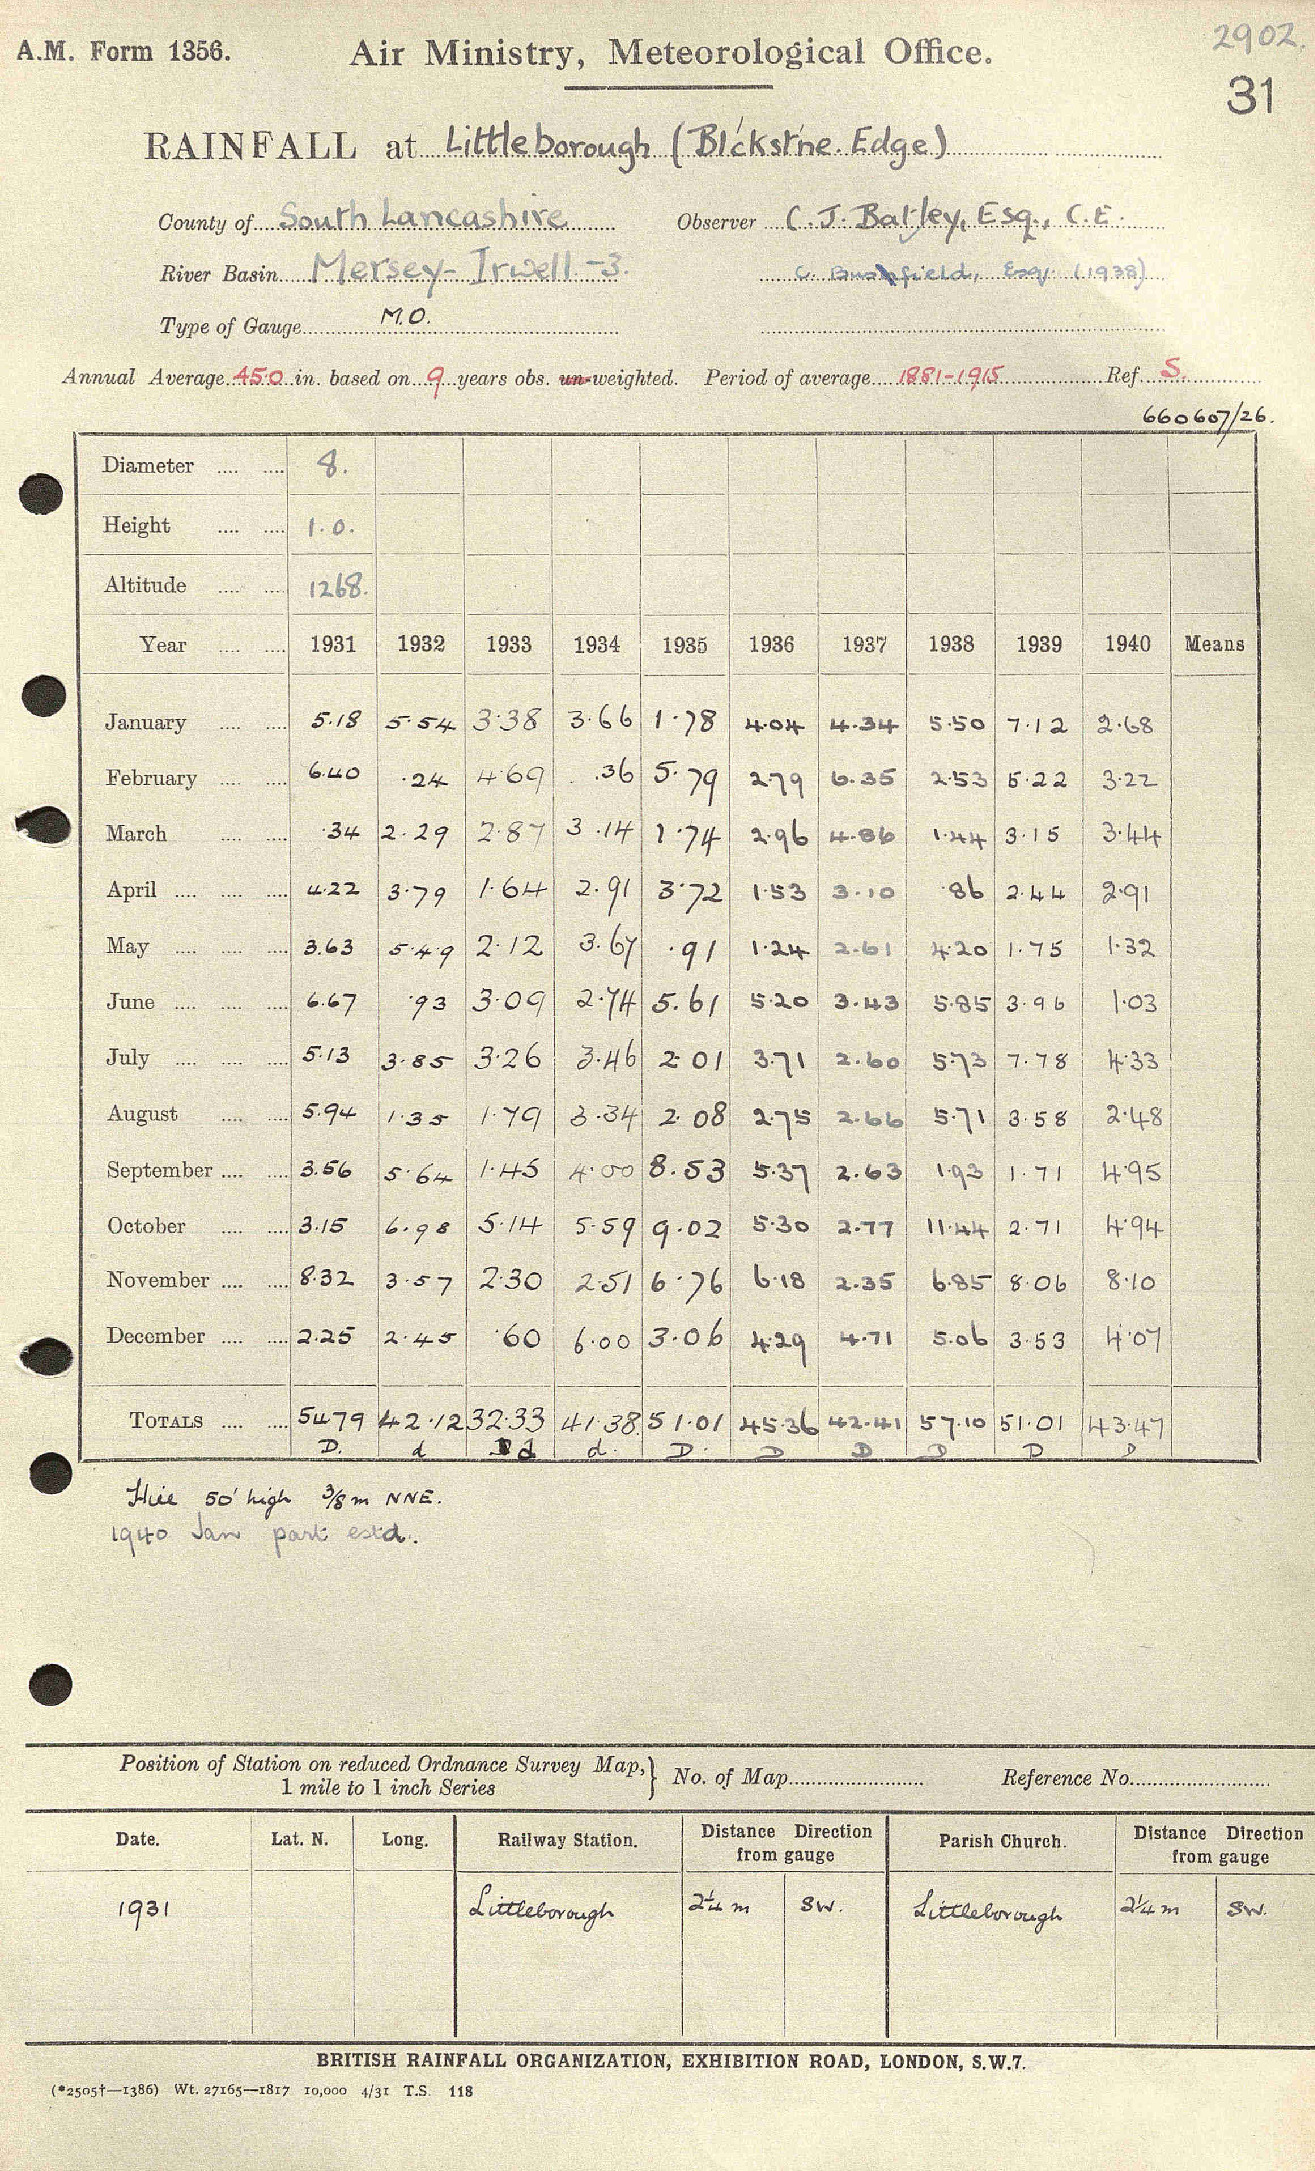 2902.
A.M. Form 1356. Air Ministry, Meteorological Office.
31
RAINFALL at Littleborough (Bl'ckst'ne. Edge)
County of South Lancashire Observer C. J. Batley, Esq., C.E.
River Basin Mersey - Irwell - 3. C. Bushfield, Esq. (1938)
Type of Gauge M.O.
Annual Average 45.0 in. based on 9 years obs. un-weighted. Period of average 1881-1915 Ref. S.
660607/26.
Diameter 8.
Height 1.0.
Altitude 1268.
Year 1931 1932 1933 1934 1935 1936 1937 1938 1939 1940 Means
January 5.18 5.54 3.38 3.66 1.78 4.04 4.34 5.50 7.12 2.68
February 6.40 .24 4.69 .36 5.79 2.79 6.35 2.53 5.22 3.22
March .34 2.29 2.87 3.14 1.74 2.96 4.86 1.44 3.15 3.44
April 4.22 3.79 1.64 2.91 3.72 1.53 3.10 .86 2.44 2.91
May 3.63 5.49 2.12 3.67 .91 1.24 2.61 4.20 1.75 1.32
June 6.67 .93 3.09 2.74 5.61 5.20 3.43 5.85 3.96 1.03
July 5.13 3.85 3.26 3.46 2.01 3.71 2.60 5.73 7.78 4.33
August 5.94 1.35 1.79 3.34 2.08 2.75 2.66 5.71 3.58 2.48
September 3.56 5.64 1.45 4.00 8.53 5.37 2.63 1.93 1.71 4.95
October 3.15 6.98 5.14 5.59 9.02 5.30 2.77 11.44 2.71 4.94
November 8.32 3.57 2.30 2.51 6.76 6.18 2.35 6.85 8.06 8.10
December 2.25 2.45 .60 6.00 3.06 4.29 4.71 5.06 3.53 4.07
TOTALS 54.79 42.12 32.33 41.38 51.01 45.36 42.41 57.10 51.01 43.47
D. d d d. D. D D D D D
50' high 3/8 m NNE.
1940 Jan part estd.
Position of Station on reduced Ordnance Survey Map, 1 mile to 1 inch Series } No. of Map Reference No.
Date. Lat. N. Long. Railway Station. Distance Direction from gauge Parish Church. Distance Direction from gauge
1931 Littleborough 2¼ m SW. Littleborough 2¼ m SW.
BRITISH RAINFALL ORGANIZATION, EXHIBITION ROAD, LONDON, S.W.7.
(*2505†—1386) Wt. 27165—1817 10,000 4/31 T.S. 118